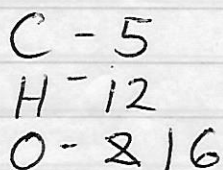 C - 5
H - 12
O - 8 16